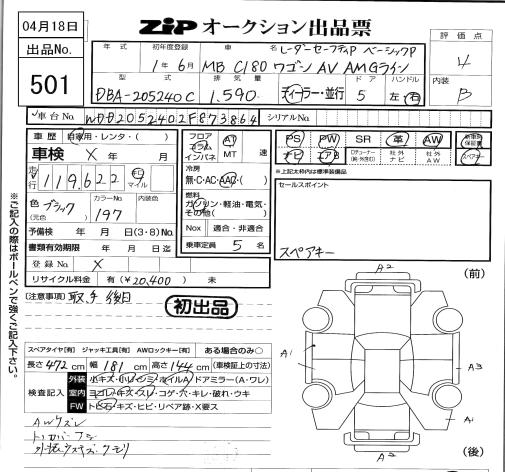 04月18日
ZIP オークション出品票
出品No.
501
年式 初年度登録 車名 ドア ハンドル
1年6月 MB C180 ワゴン AV AMGライン
レーダーセーフティP ベーシックP
評価点
4
内装
B
型式 排気量
DBA-205240C 1.590 ディーラー・並行 5 左・右
車台No. WDD2052402F873864 シリアルNo.
車歴 自家用・レンタ・( )
車検 X 年 月
走行 119.622 km マイル
色 ブラック (元色) カラーNo. 197 内装色
予備検 年 月 日(3・8)No.
書類有効期限 年 月 日迄
登録No. X
リサイクル料金 有(¥20,400) 未
フロア コラム インパネ AT MT 速
冷房
無・C・AC・AAC・( )
燃料
ガソリン・軽油・電気・その他( )
Nox 適合・非適合
乗車定員 5 名
PS PW SR 革 AW 新車時保証書
ナビ エアB 社外ナビ 社外AW スペアキー
※上記太枠内は標準装備品
セールスポイント
スペアキー
※ご記入の際はボールペンで強くご記入下さい。
(注意事項) 取説 後日
初出品
スペアタイヤ[有] ジャッキ工具[有] AWロックキー[有] ある場合のみ○
長さ 472 cm 幅 181 cm 高さ 144 cm (車検証上の寸法)
検査記入
外装 小キズ・小ヘコミ・ホイルA・ドアミラー(A・ワレ)
室内 ヨゴレ・キズ・スレ・コゲ・穴・キレ・破れ・ウキ
FW トビ石・キズ・ヒビ・リペア跡・X要ス
AWキズ
(前)
A2
A1
A3
A1
A2
(後)